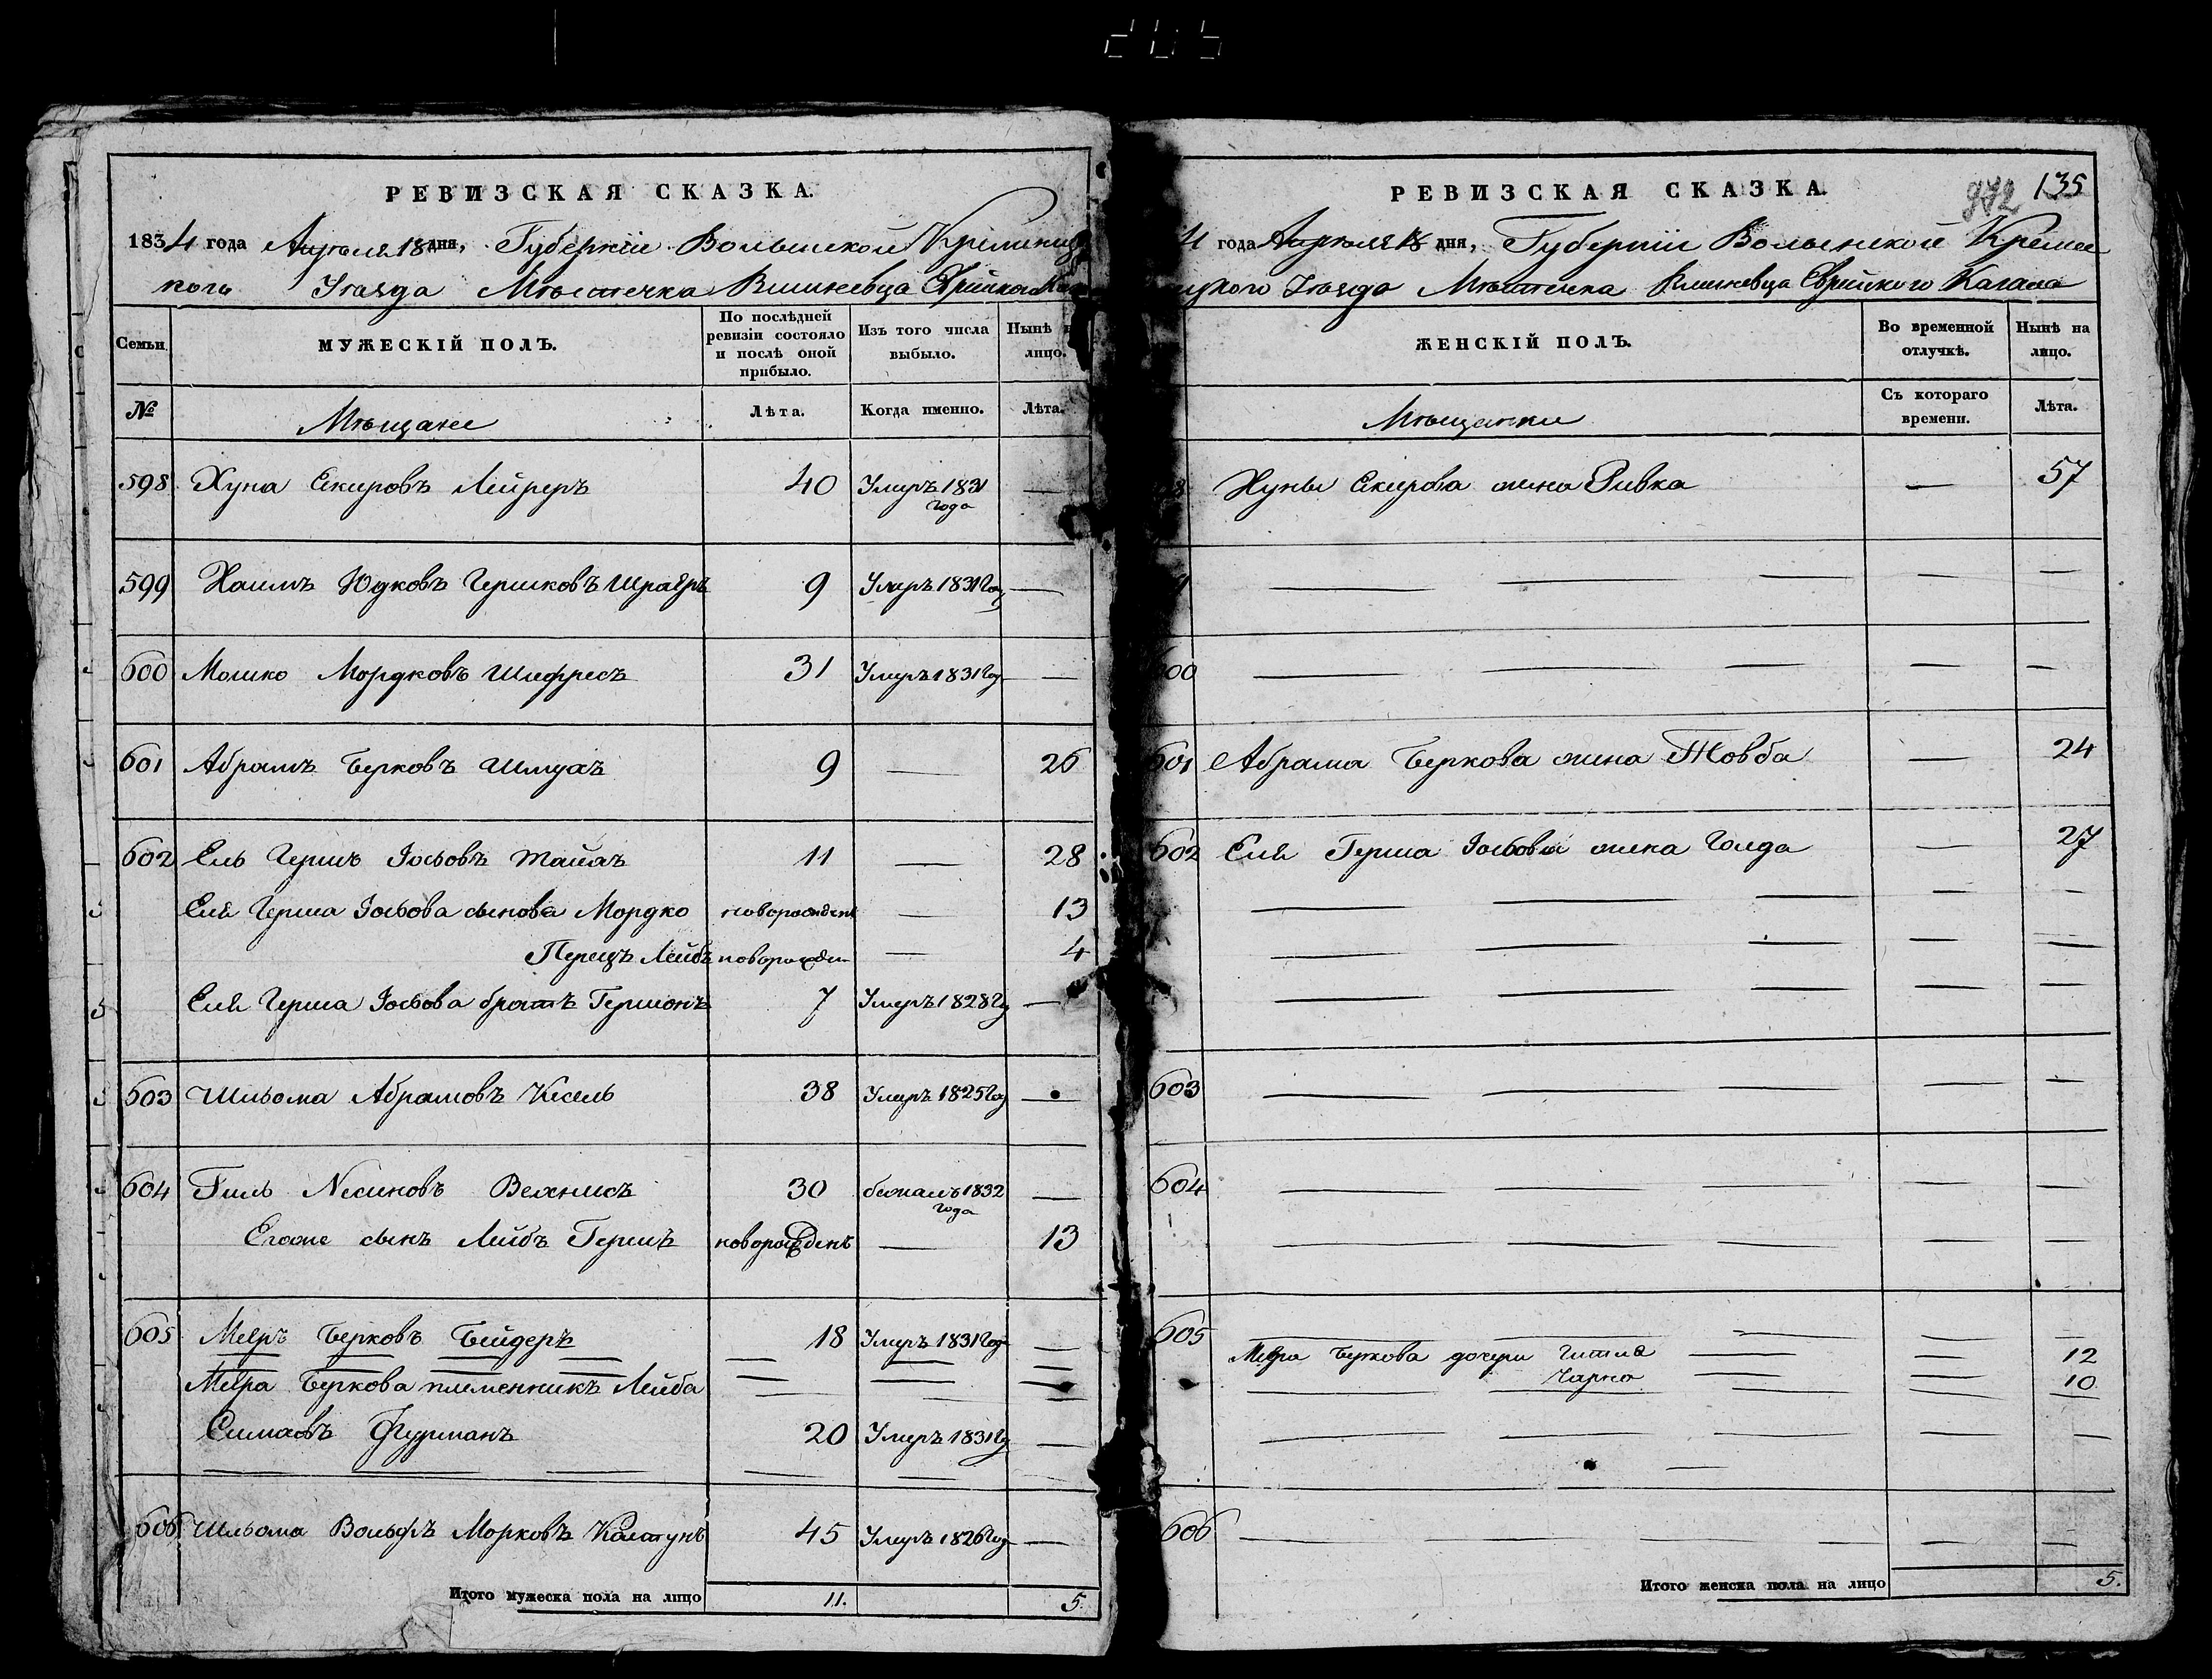 РЕВИЗСКАЯ СКАЗКА.
1834 года Апреля 18 дня, Губернiи Волынской Кременец
кого Уезда Мѣстечка Вишневца Еврейского
Семьи
МУЖЕСКIЙ ПОЛЪ.
По послѣдней ревизiи состояло и послѣ оной прибыло.
Изъ того числа выбыло.
Нынѣ на лицо.
№
Мѣщане
Лѣта.
Когда именно.
Лѣта.
598 Хуна Секировъ Лейреръ 40 Умеръ 1831 года —
599 Хаимъ Юдковъ Гершковъ Шраеръ 9 Умеръ 1831 Год —
600 Мошко Мордковъ Шефресъ 31 Умеръ 1831 Год —
601 Абрамъ Берковъ Шмуахъ 9 — 26
602 Ель Гершъ Iосьовъ 11 — 28
Еля Герша Iосьова сынова Мордко новорожденъ — 13
Перецъ Лейбъ новорожден — 4
Еля Герша Iосьова братъ Гершонъ 7 Умеръ 1828 Го —
603 Шльома Абрамовъ Кесель 38 Умеръ 1825 Год —
604 Гиль Несиновъ 30 бежалъ 1832 года —
Егоже сынъ Лейбъ Гершъ новорожденъ — 13
605 Мееръ Берковъ Бейдеръ 18 Умеръ 1831 Год —
Меера Беркова племенникъ Лейба
Симховъ Фурманъ 20 Умеръ 1831 Го —
606 Шльома Вольфъ Морковъ Калтунъ 45 Умеръ 1826 Год —
Итого мужеска пола на лицо 11. 5.
РЕВИЗСКАЯ СКАЗКА.
972 135
4 года Апреля 18 дня, Губернiи Волынской Кремен
ецкого Уезда Мѣстечка Вишневца Еврейского Кагала
ЖЕНСКIЙ ПОЛЪ.
Во временной отлучкѣ.
Нынѣ на лицо.
Мѣщанки
Съ котораго времени.
Лѣта.
8 Хуны Секирова жена Ривка — 57
600
601 Абрама Беркова жена Товба — 24
602 Еля Герша Iосьова жена Голда — 27
603
604
605
Меера Беркова дочери Гитля 12
Чарна 10
606
Итого женска пола на лицо 5.